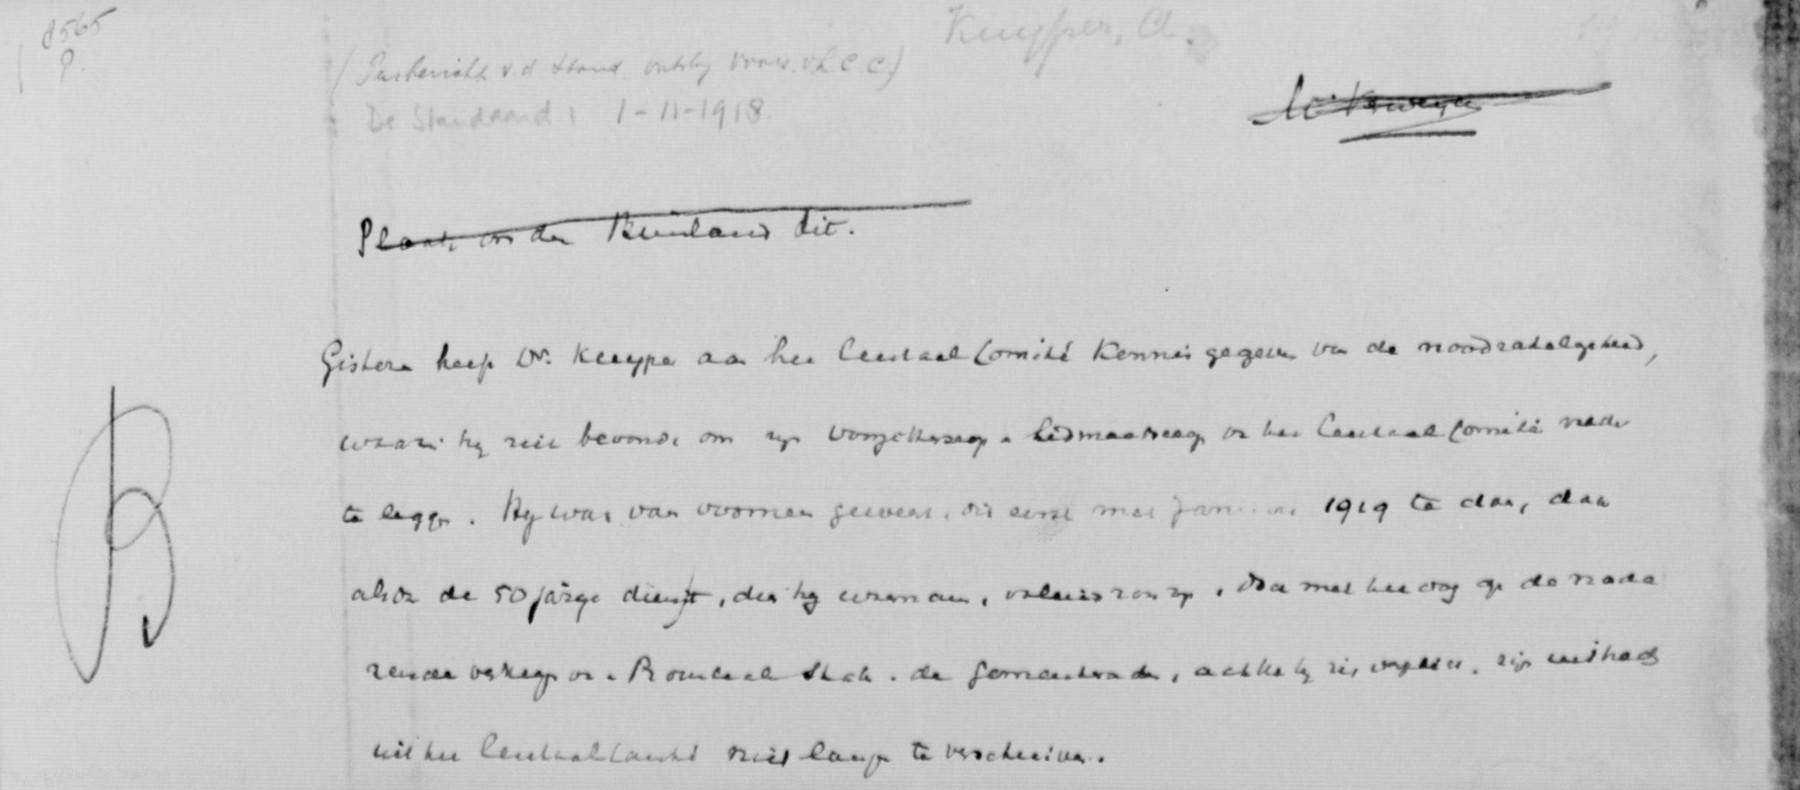 8565
P.
Kuyper, A.
(Persbericht v. d. Stand. ontsl. voorz. v.h. C.C.)
De Standaard: 1-11-1918.
Dr Kuyper
Plaats on der Binnenland dit.
Gisteren heeft Dr. Kuyper aan het Centraal Comité kennis gegeven van de noodzakelijkheid,
waarin hij zich bevond om zijn voorzitterschap en lidmaatschap van het Centraal Comité neder
te leggen. Hij was van voornemen geweest, dit eerst met Januari 1919 te doen, daar
alsdan de 50 jarige dienst, die hij waarnam, voleind zou zijn. Doch met het oog op de nade
rende verkiezingen Provinciale State en de Gemeenteraden, achtte hij zich verplicht, zijn uittreden
uit het Centraal Comité niet langer te verschuiven.
B